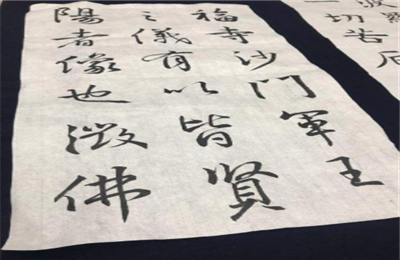 波
一切苦厄
福寺沙門軍王
之儀有以皆賢
陽者像也微佛